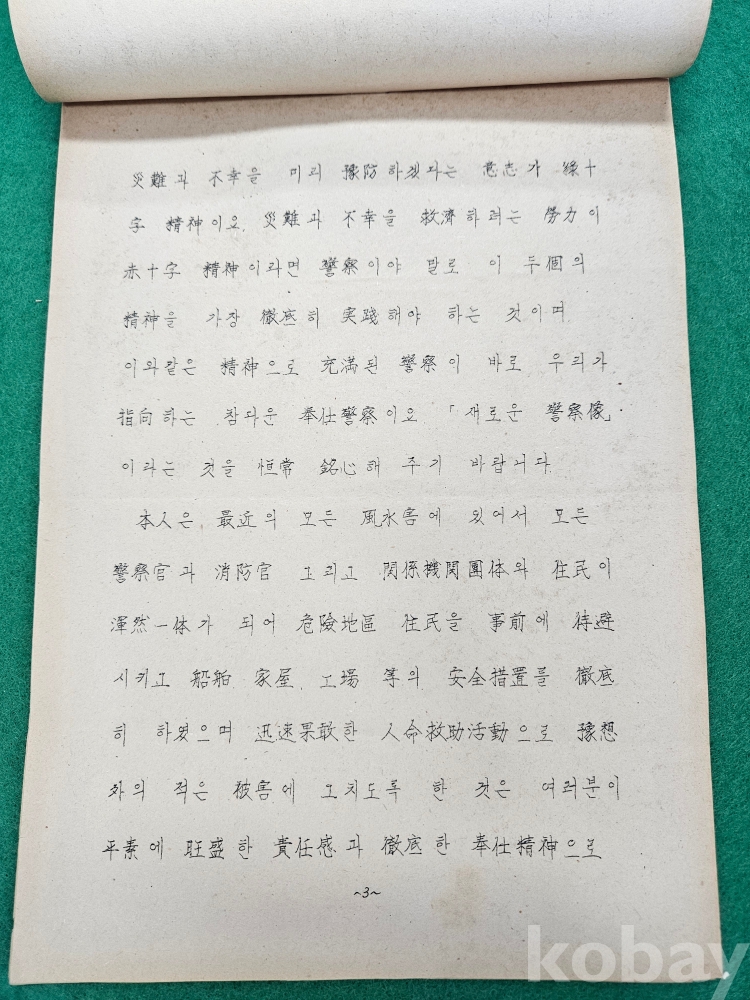 災難과 不幸을 미리 豫防하겠다는 意志가 綠十
字 精神이요, 災難과 不幸을 救濟하려는 勞力이
赤十字 精神이라면 警察이야 말로 이 두個의
精神을 가장 徹底히 実踐해야 하는 것이며
이와같은 精神으로 充滿된 警察이 바로 우리가
指向하는 참다운 奉仕警察이요 「새로운 警察像」
이라는 것을 恒常 銘心해 주기 바랍니다.
本人은, 最近의 모든 風水害에 있어서 모든
警察官과 消防官 그리고 関係機関團体와 住民이
渾然一体가 되어 危險地區 住民을 事前에 待避
시키고 船舶 家屋, 工場 等의 安全措置를 徹底
히 하였으며 迅速果敢한 人命救助活動으로 豫想
外의 적은 被害에 그치도록 한 것은 여러분이
平素에 旺盛한 責任感과 徹底한 奉仕精神으로
~3~
kobay